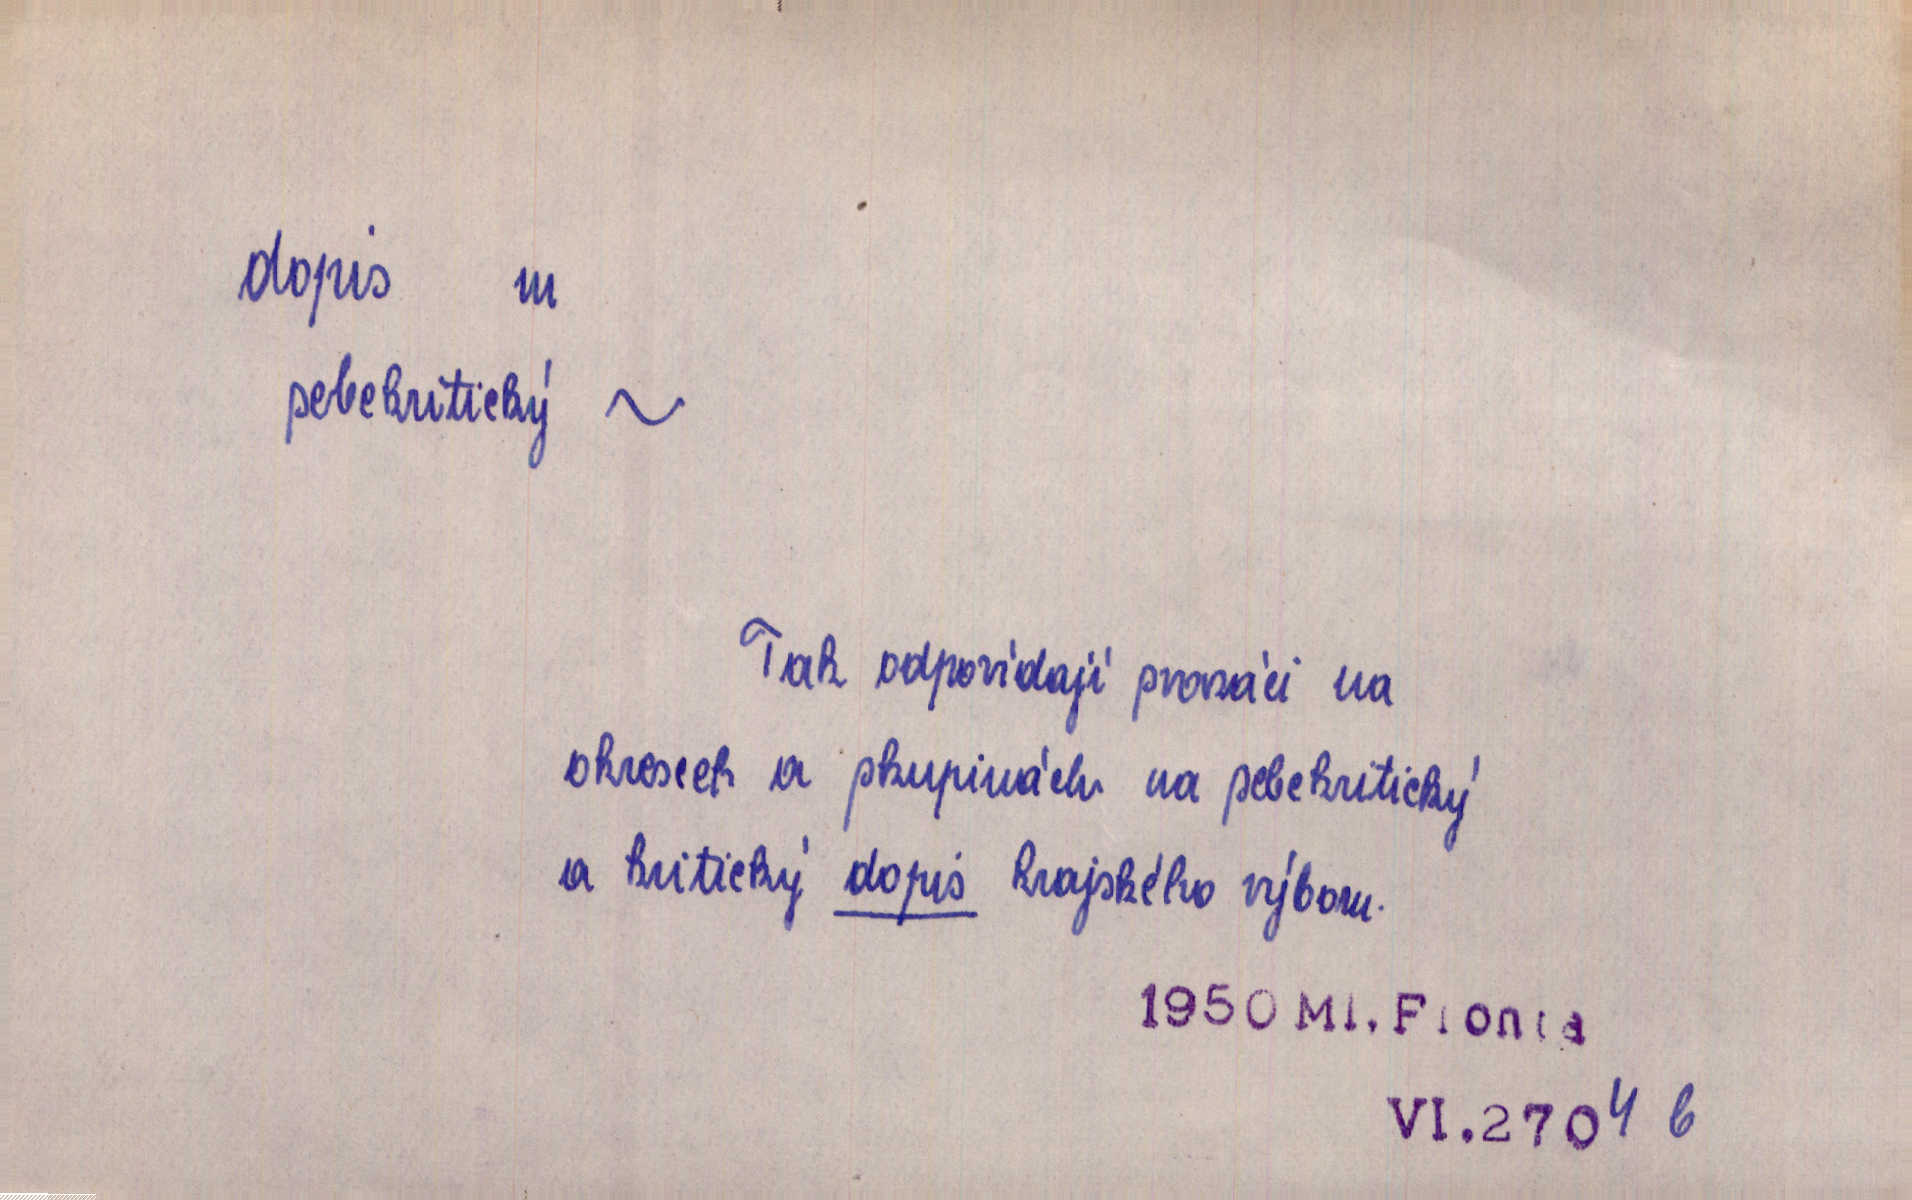 dopis m
sebekritický ~
Tak odpovídají svazáci na
okresech a skupinách na sebekritický
a kritický dopis krajského výboru.
1950 Ml. Fronta
VI.2704 b